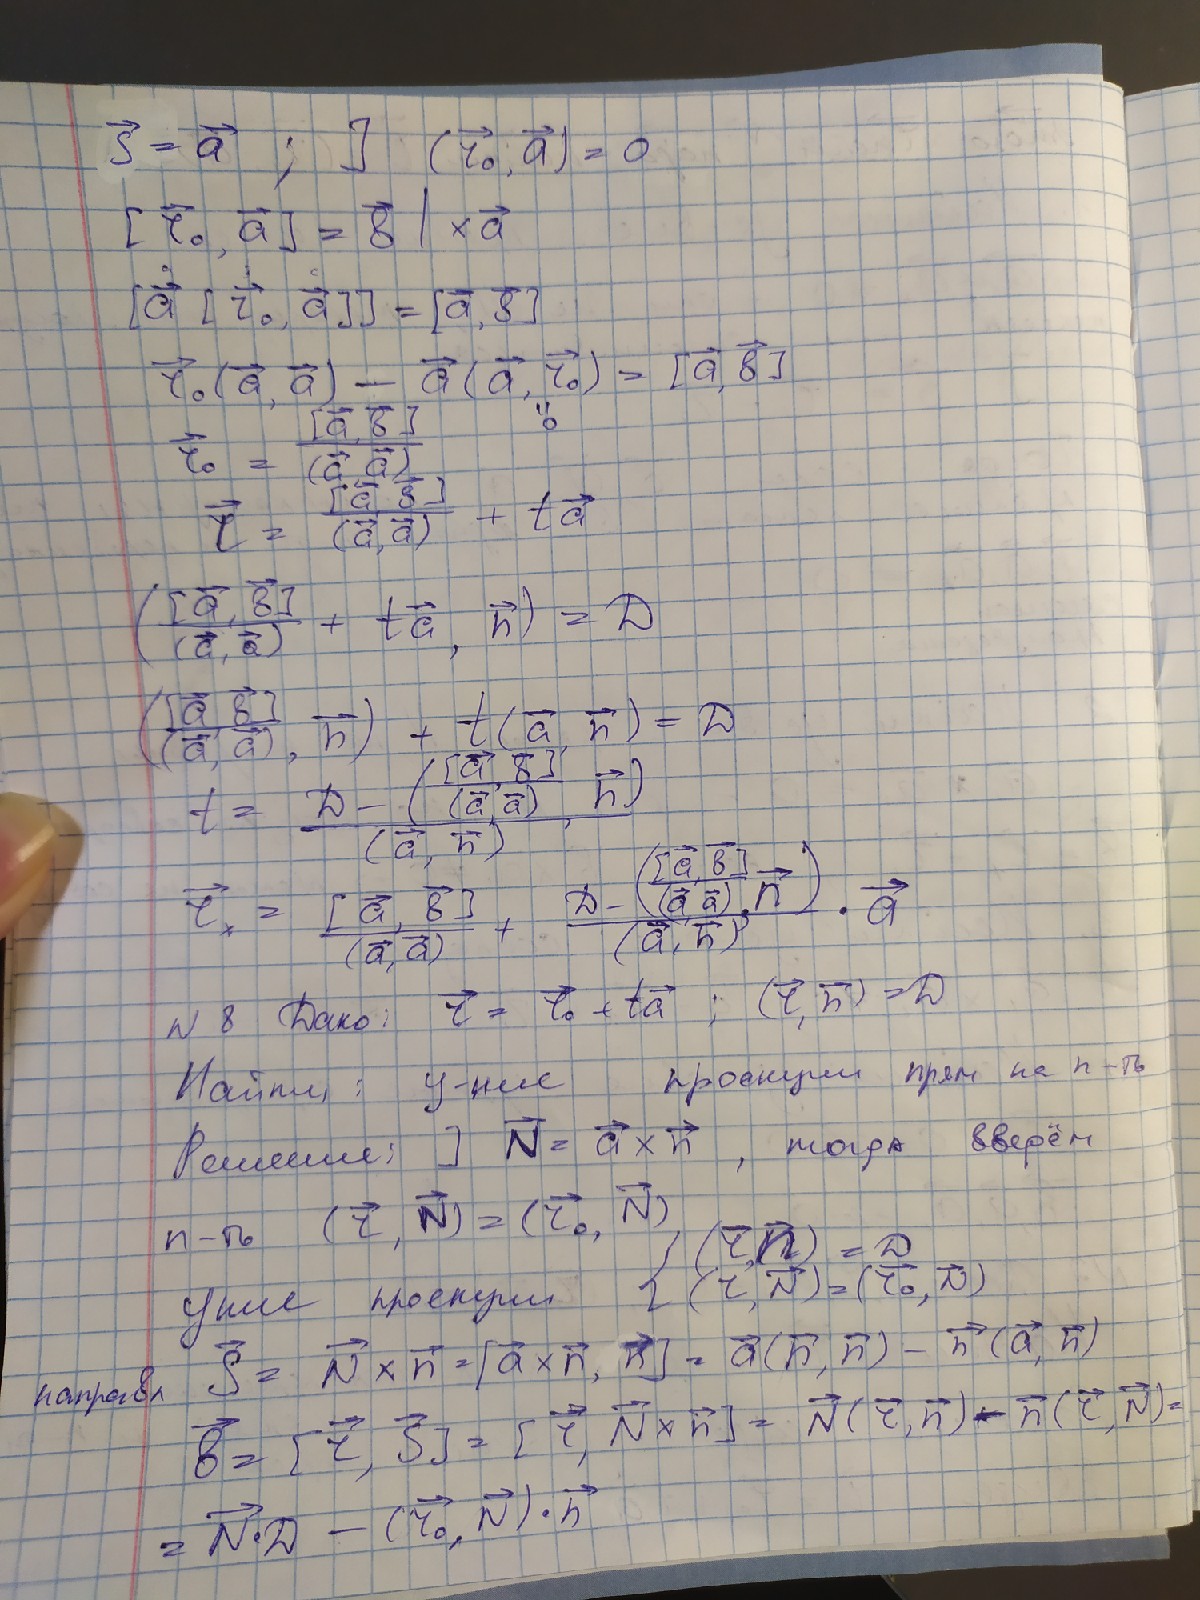 S⃗ = a⃗ ; ] (r⃗₀, a⃗) = 0
[r⃗₀, a⃗] = b⃗ | × a⃗
[a⃗ [r⃗₀, a⃗]] = [a⃗, b⃗]
r⃗₀(a⃗, a⃗) − a⃗(a⃗, r⃗₀) = [a⃗, b⃗]
"0
r⃗₀ = [a⃗, b⃗] / (a⃗, a⃗)
r⃗ = [a⃗ b⃗] / (a⃗, a⃗) + ta⃗
([a⃗, b⃗] / (a⃗, a⃗) + ta⃗, n⃗) = D
([a⃗ b⃗] / (a⃗, a⃗), n⃗) + t(a⃗, n⃗) = D
t = (D − ([a⃗, b⃗] / (a⃗, a⃗), n⃗)) / (a⃗, n⃗)
r⃗ₓ = [a⃗, b⃗] / (a⃗, a⃗) + (D − ([a⃗, b⃗] / (a⃗, a⃗), n⃗)) / (a⃗, n⃗) · a⃗
N 8 Дано: r⃗ = r⃗₀ + ta⃗ ; (r⃗, n⃗) = D
Найти: у-ние проекции прям на п-ть
Решение: ] N⃗ = a⃗ × n⃗ , тогда введём
п-ть (r⃗, N⃗) = (r⃗₀, N⃗)
у-ние проекции { (r⃗, n⃗) = D
(r⃗, N⃗) = (r⃗₀, N⃗)
направл S⃗ = N⃗ × n⃗ = [a⃗ × n⃗, n⃗] = a⃗(n⃗, n⃗) − n⃗(a⃗, n⃗)
b⃗ = [r⃗, S⃗] = [r⃗, N⃗ × n⃗] = N⃗(r⃗, n⃗) − n⃗(r⃗, N⃗) =
= N⃗·D − (r⃗₀, N⃗)·n⃗